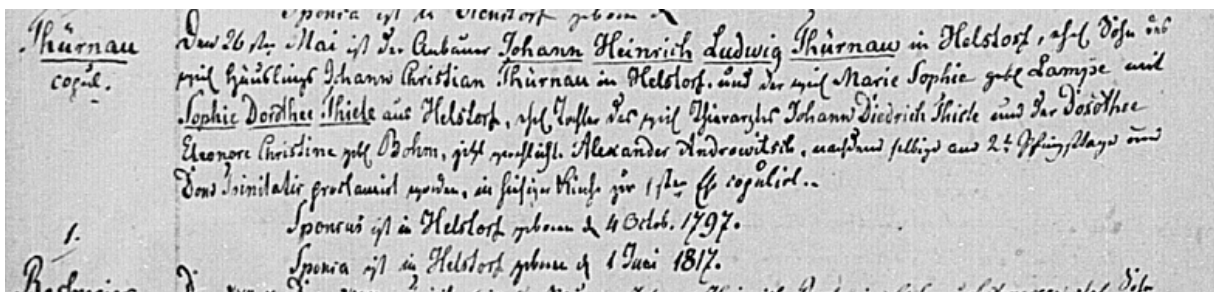 Sponsa ist in geboren d
Thürnau
copul.
Den 26sten Mai ist der Anbauer Johann Heinrich Ludwig Thürnau in Helstorf, ehel Sohn des
weil Häuslings Johann Christian Thürnau in Helstorf. und der weil Marie Sophie gebl Lampe mit
Sophie Dorothee Thiele aus Helstorf, ehel Tochter des weil Thierarztes Johann Diedrich Thiele und der Dorothee
Eleonore Christine gebl Bohm, jetzt verehlicht. Alexander Androwitsch, nachdem selbige am 2t Pfingsttage und
Dom Trinitatis proclamirt worden, in hiesiger Kirche zur 1sten Ehe copulirt.
Sponsus ist in Helstorf geboren d 4 Octob. 1797.
1.
Sponsa ist in Helstorf geboren d 1 Juni 1817.